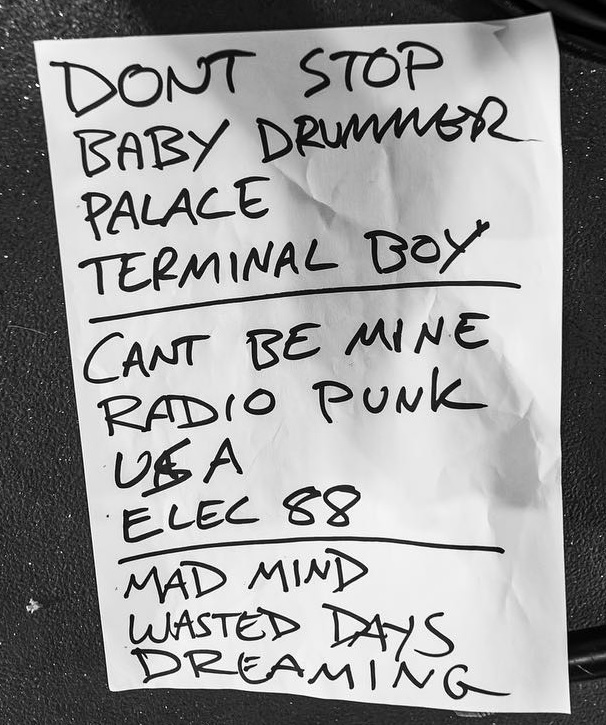 DONT STOP
BABY DRUMMER
PALACE
TERMINAL BOY
CANT BE MINE
RADIO PUNK
USA
ELEC 88
MAD MIND
WASTED DAYS
DREAMING